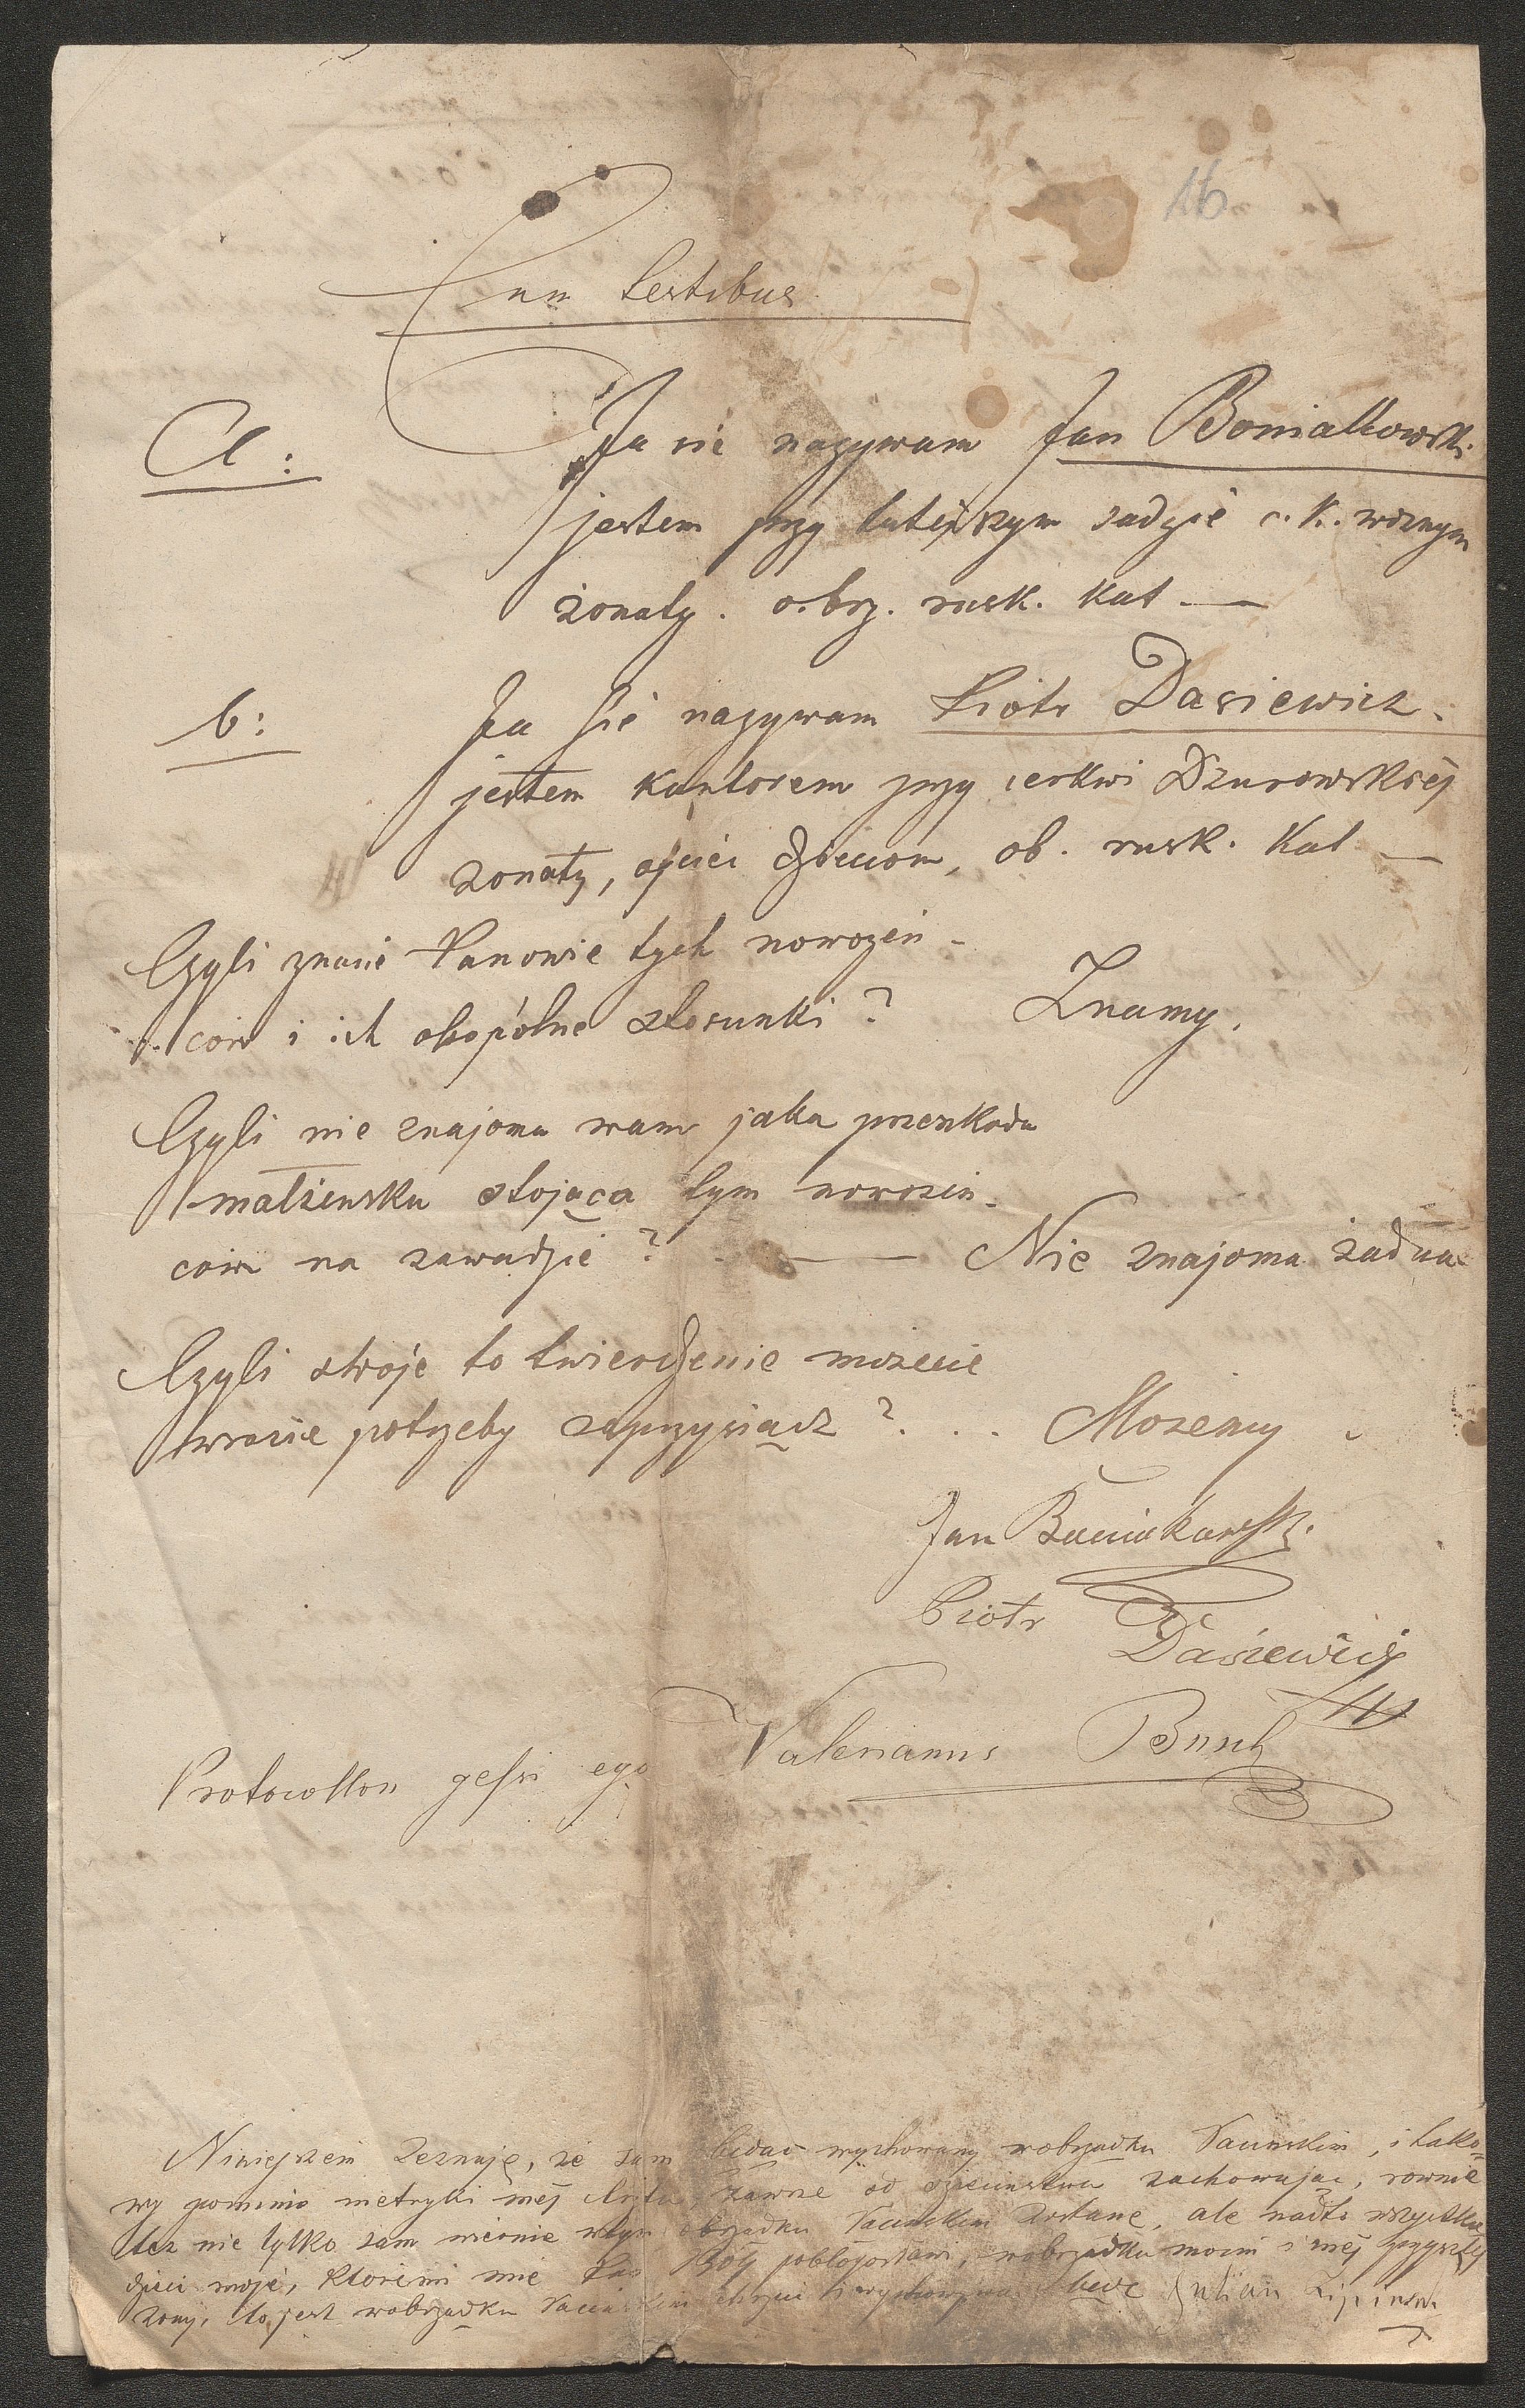 16
Cum testibus
A: Ja sie nazywam Jan Boniakowski
jestem przy tutejszym sadzie c. k. woznym
żonaty. obrz. rusk. kat —
b: Ja sie nazywam Piotr Dasiewicz.
jestem kantorem przy cerkwi Dżurowskiej
zonaty, ojciec dzieciom, ob. rusk. kat —
Czyli znacie Panowie tych nowożeń-
ców i ich obopólne stosunki? Znamy.
Czyli nie znajoma wam jaka przeszkoda
małżeńska stojąca tym nowożeń-
ców na zawadzie? — Nie znajoma żadna
Czyli swoje to twierdzenie możecie
w razie potrzeby zaprzysiądz? . . Możemy
Jan Boniakowski.
Piotr Dasiewicz
Protocollon gessi ego Valerianus
Niniejszem Zeznaję, że sam będąc wychowany w obrządku Łacińskim, i tako-
wy pomimo metryki mej chrztu, zawsze od dzieciństwa zachowując, rownie
też nie tylko sam wiernie w tym obrządku Łacińskim zostanę, ale nadto wszystkie
dzieci moje, któremi mie Pan Bóg pobłogosławi, w obrządku moim i mej przyszłej
żony, to jest w obrządku Łacińskim chrzcić i wychowywać będę Julian